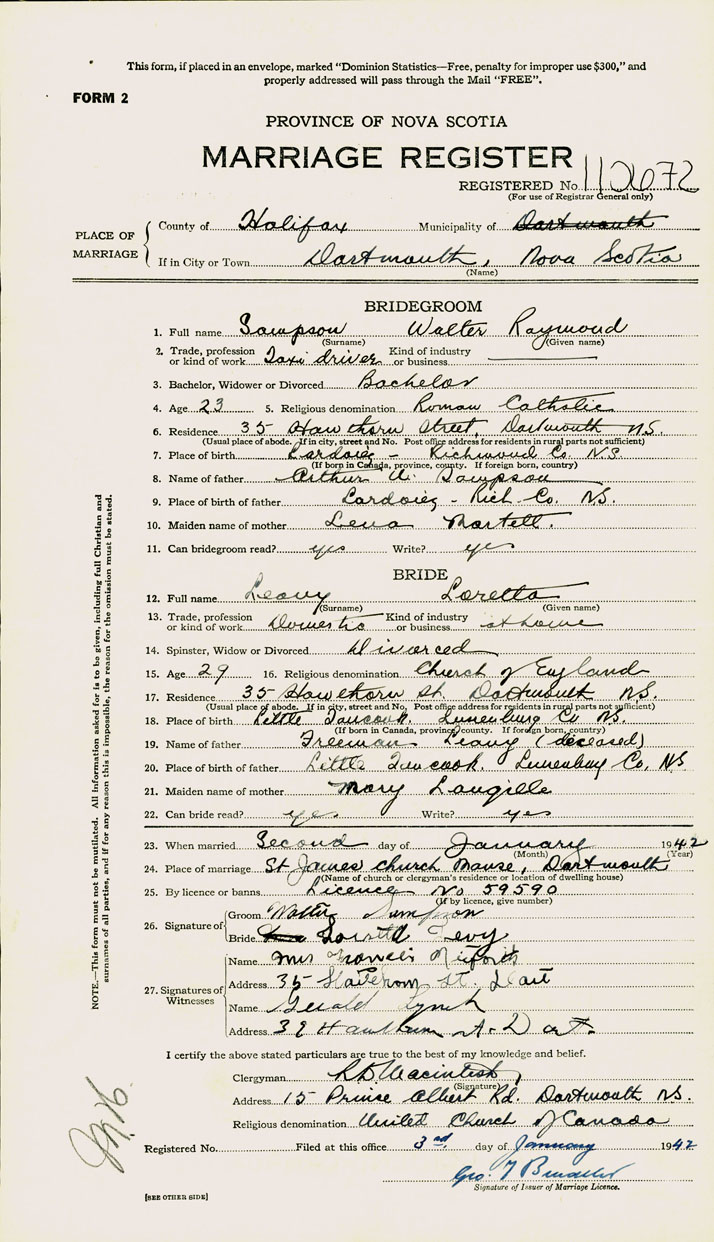 This form, if placed in an envelope, marked "Dominion Statistics—Free, penalty for improper use $300," and
properly addressed will pass through the Mail "FREE".
FORM 2
PROVINCE OF NOVA SCOTIA
MARRIAGE REGISTER
REGISTERED No. 110672
(For use of Registrar General only)
PLACE OF MARRIAGE
County of Halifax Municipality of Dartmouth
If in City or Town Dartmouth, Nova Scotia
(Name)
BRIDEGROOM
1. Full name Sampson Walter Raymond
(Surname) (Given name)
2. Trade, profession or kind of work Taxi driver Kind of industry or business
3. Bachelor, Widower or Divorced Bachelor
4. Age 23 5. Religious denomination Roman Catholic
6. Residence 35 Hawthorn Street, Dartmouth N.S.
(Usual place of abode. If in city, street and No. Post office address for residents in rural parts not sufficient)
7. Place of birth - Richmond Co. N.S.
(If born in Canada, province, county. If foreign born, country)
8. Name of father Arthur Sampson
9. Place of birth of father - Rich. Co. N.S.
10. Maiden name of mother Lena Martell.
11. Can bridegroom read? yes Write? yes
BRIDE
12. Full name Leavy Loretta
(Surname) (Given name)
13. Trade, profession or kind of work Domestic Kind of industry or business at home
14. Spinster, Widow or Divorced Divorced
15. Age 29 16. Religious denomination Church of England
17. Residence 35 Hawthorn St. Dartmouth N.S.
(Usual place of abode. If in city, street and No. Post office address for residents in rural parts not sufficient)
18. Place of birth Little Tancook. Lunenburg Co N.S.
(If born in Canada, province, county. If foreign born, country)
19. Name of father Freeman Leavy (deceased)
20. Place of birth of father Little Tancook. Lunenburg Co, N.S
21. Maiden name of mother Mary Langille
22. Can bride read? yes Write? yes
23. When married Second day of January 1942
(Month) (Year)
24. Place of marriage St James church Manse, Dartmouth
(Name of church or clergyman's residence or location of dwelling house)
25. By licence or banns Licence No 59590
(If by licence, give number)
26. Signature of
Groom Walter Sampson
Bride Levy
27. Signatures of Witnesses
Name Mrs Francis
Address 35 St. Dart
Name Gerald Lynch
Address 39 Hawthorn St. Dart.
I certify the above stated particulars are true to the best of my knowledge and belief.
Clergyman Macintosh
(Signature)
Address 15 Prince Albert Rd. Dartmouth N.S.
Religious denomination United Church of Canada
Registered No. Filed at this office 3rd day of January 1942
Geo.
Signature of Issuer of Marriage Licence.
[SEE OTHER SIDE]
NOTE.—This form must not be mutilated. All information asked for is to be given, including full Christian and
surnames of all parties, and if for any reason this is impossible, the reason for the omission must be stated.